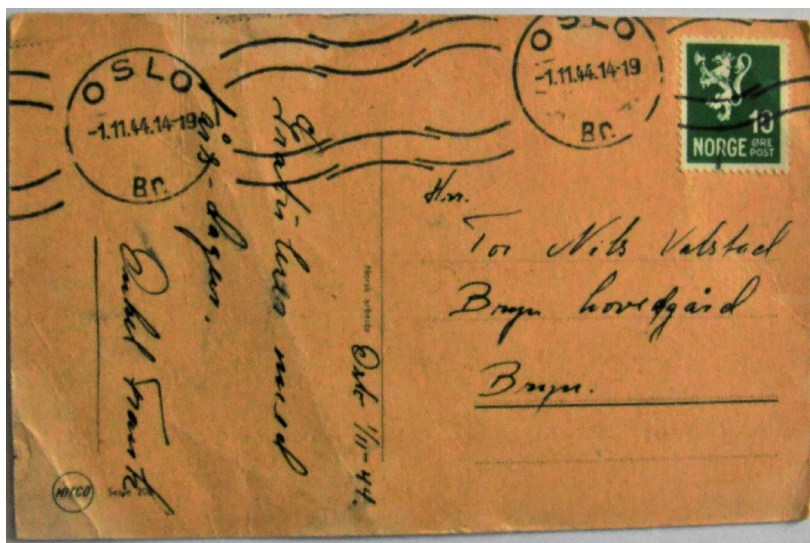 OSLO
-1.11.44.14-19
Br.
OSLO
-1.11.44.14-19
Br.
10
NORGE ØRE
POST
Hrr.
Tor Nils Valstad
Bryn hovedgård
Bryn.
Norsk arbeide
Oslo 1/11-44.
Gratulerer med
års-dagen.
Onkel
MITCO
Serie